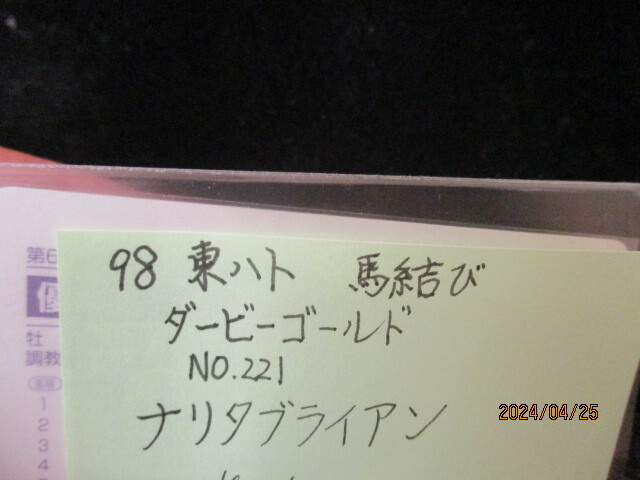 98 東ハト 馬結び
ダービーゴールド
NO.221
ナリタブライアン
第6
優
牡
調教
1
2
3
4
2024/04/25